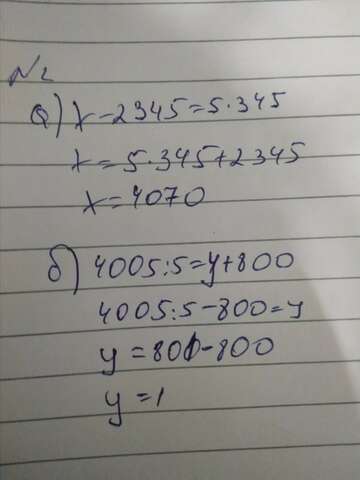 №2
а) x-2345=5·345
x=5·345+2345
x=4070
б) 4005:5=y+800
4005:5-800=y
y=801-800
y=1